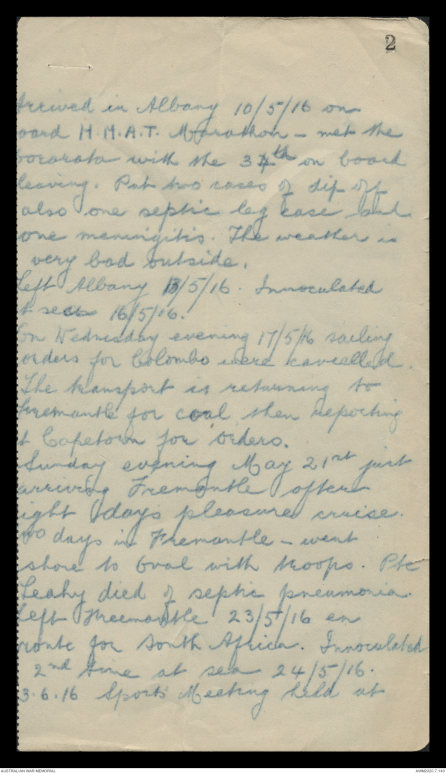 2
Arrived in Albany 10/5/16 on
board H.M.A.T. Marathon - met the
with the 34th on board
leaving. Put two cases of dip off
also one septic leg case and
one meningitis. The weather is
very bad outside.
Left Albany 13/5/16. Innoculated
at sea 16/5/16.
On Wednesday evening 17/5/16 sailing
orders for Colombo were cancelled.
The transport is returning to
Fremantle for coal then reporting
at Capetown for orders.
Sunday evening May 21st just
arriving Fremantle after
eight days pleasure cruise.
Two days in Fremantle - went
ashore to Oval with troops. Pte
Leahy died of septic pneumonia.
Left Freemantle 23/5/16 en
route for South Africa. Innoculated
2nd time at sea 24/5/16.
3.6.16 Sports Meeting held at
AUSTRALIAN WAR MEMORIAL